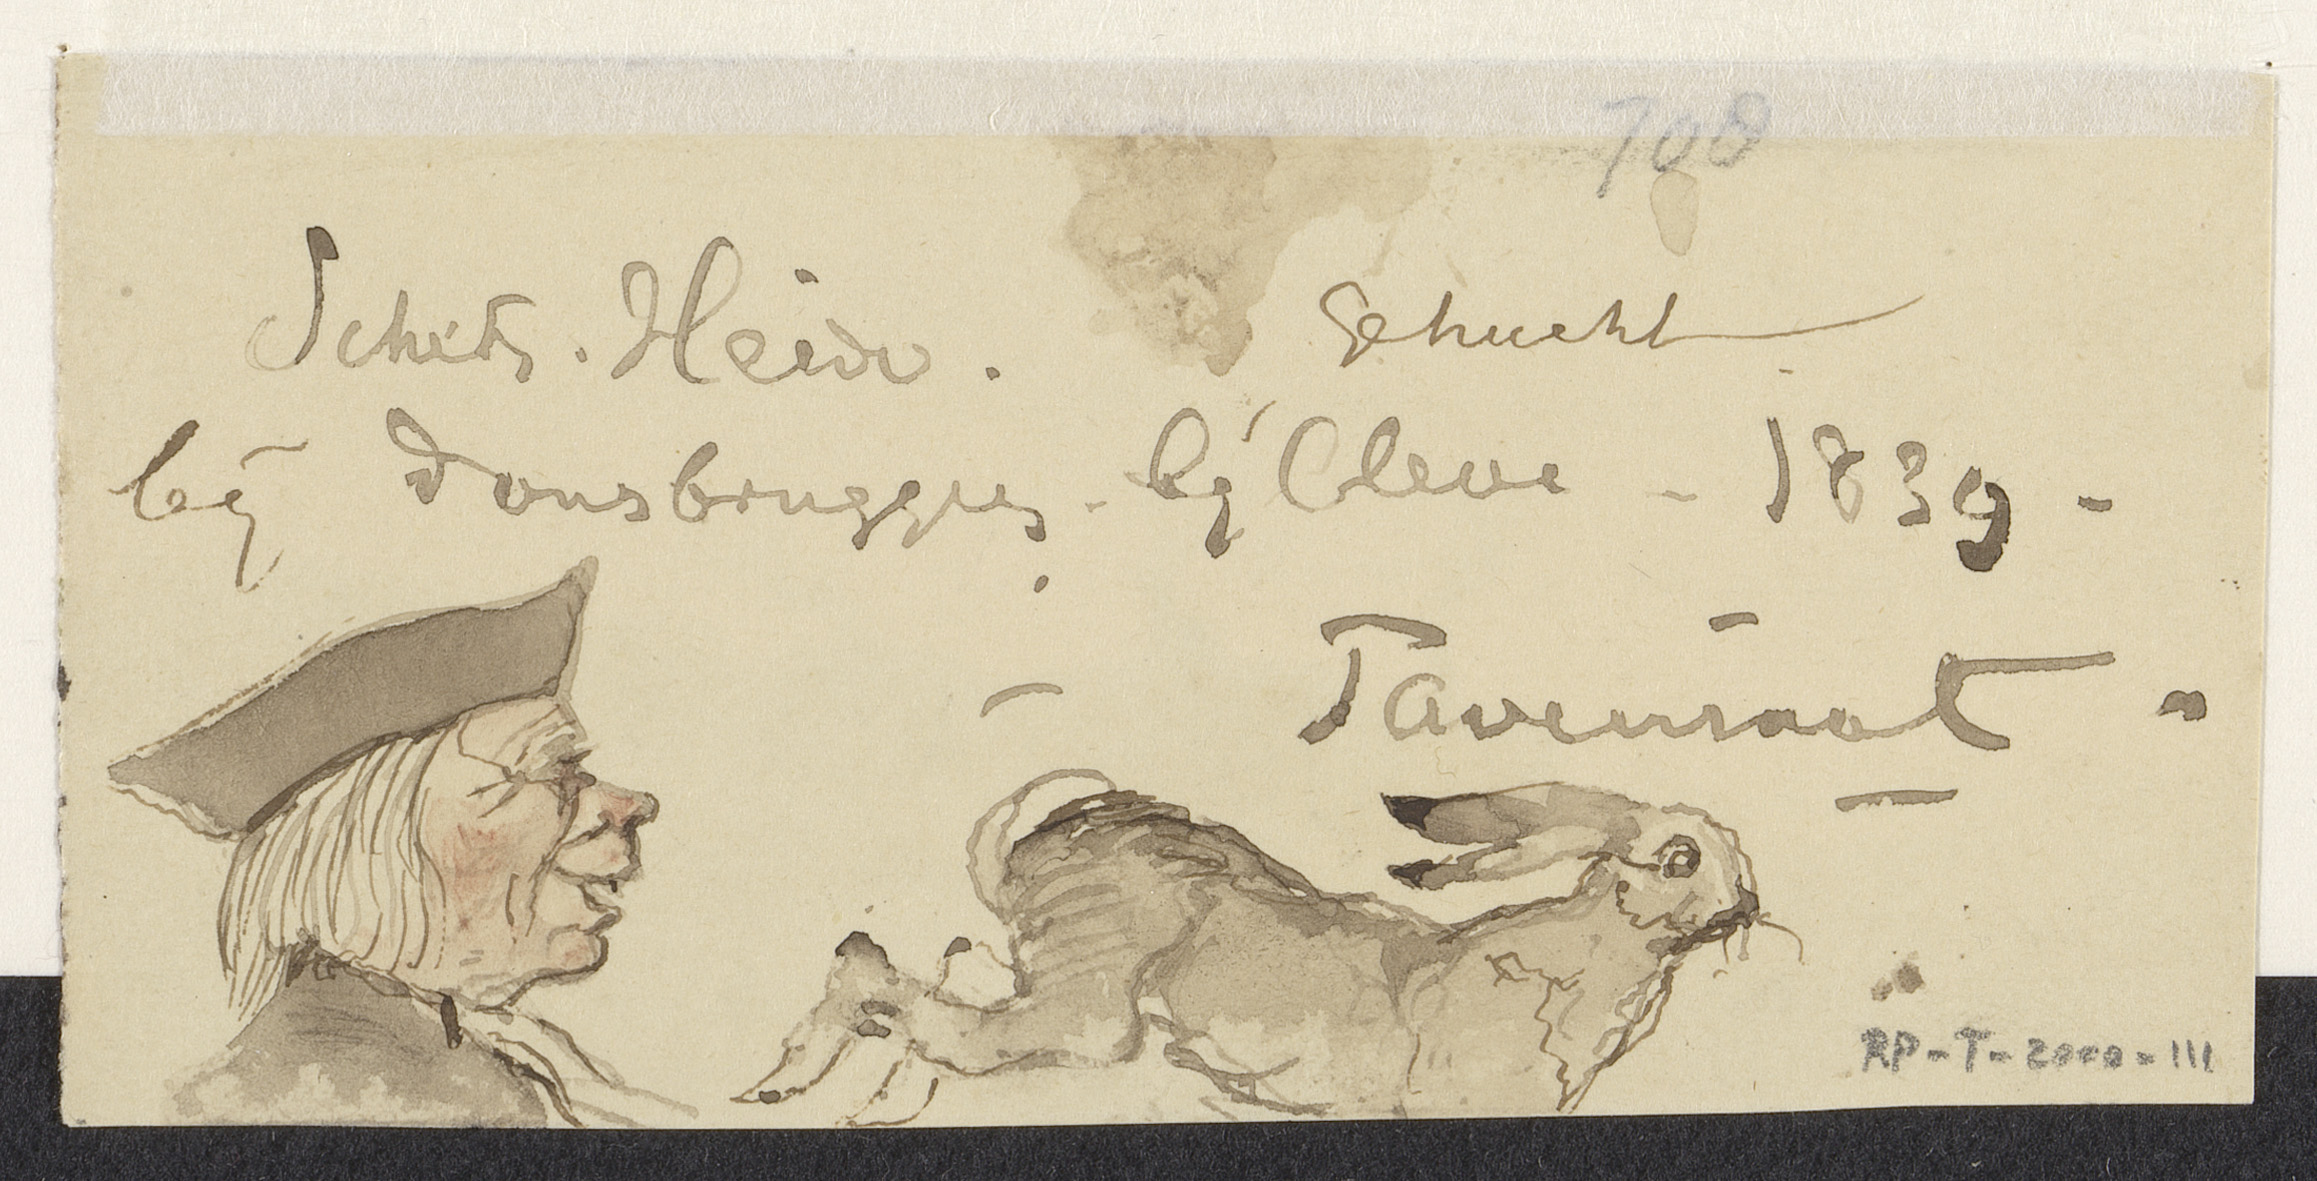 708
Schets. Heide. Gehucht
bij Donsbruggen. bij Cleve - 1839 -
Tavenraat
RP-T-2000-111